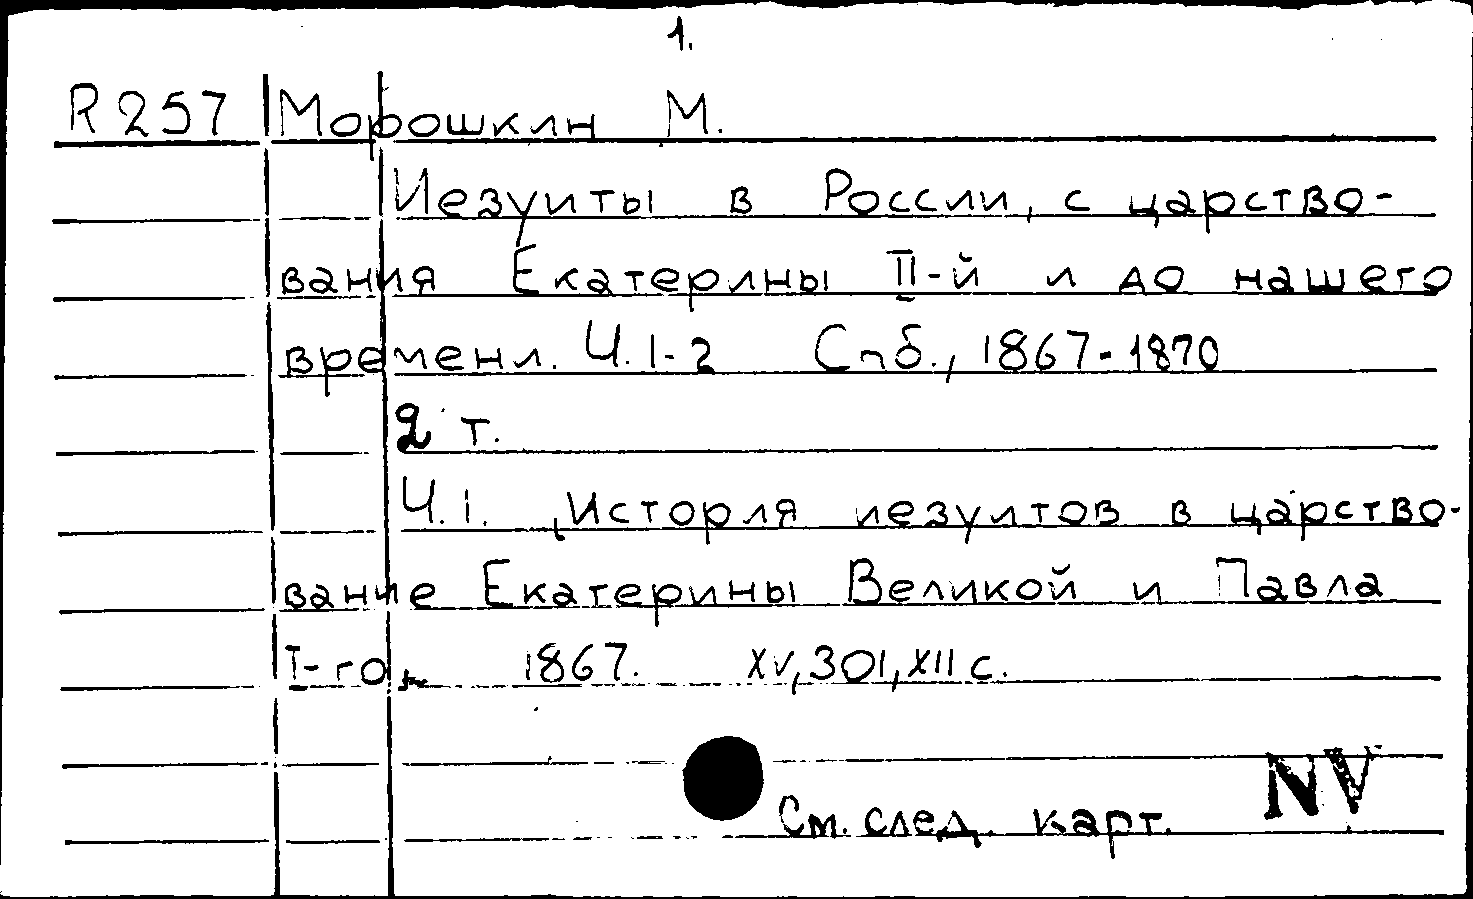 1.
R 257 Морошкин М.
Иезуиты в России, с царство-
вания Екатерины II-й и до нашего
времени. Ч. 1-2 Спб., 1867-1870
2 т.
Ч. 1. История иезуитов в царство-
вание Екатерины Великой и Павла
I-го. 1867. XV, 301, XII с.
См. след. карт. NV